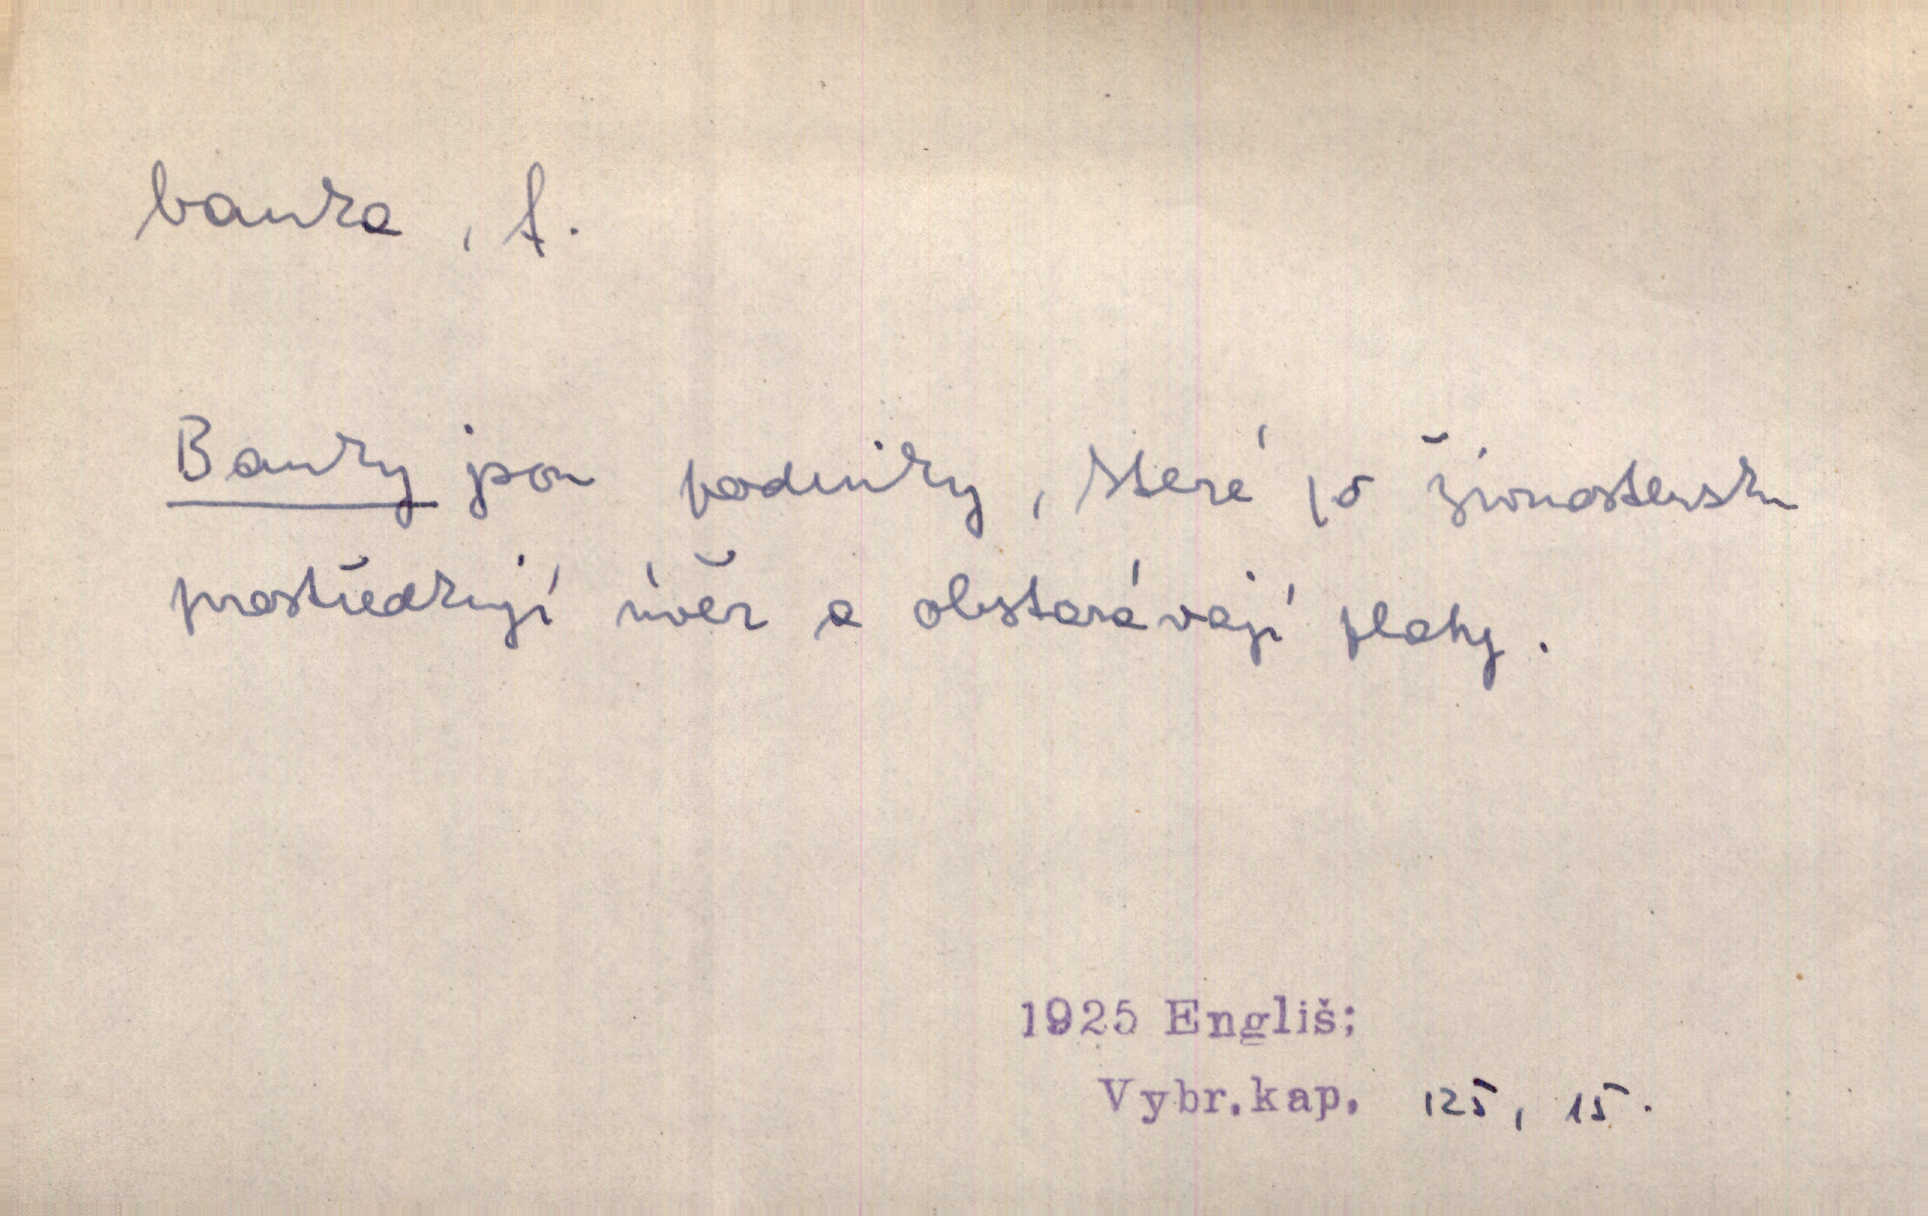 banka, f.
Banky jsou podniky, které po živnostensku
prostředkují úvěr a obstarávají platy.
1925 Engliš;
Vybr.kap. 125, 15.